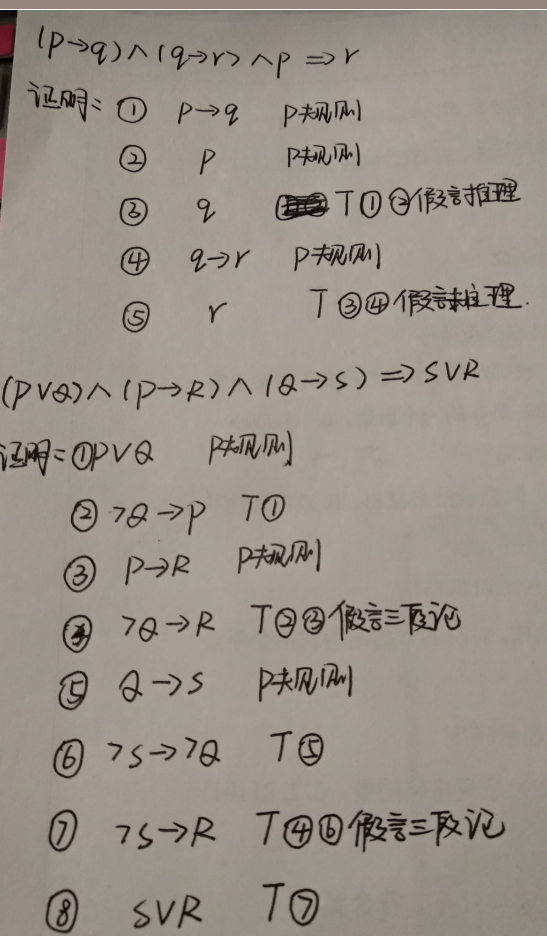 (p→q)∧(q→r)∧p⇒r
证明: ① p→q P规则
② p P规则
③ q T①②假言推理
④ q→r P规则
⑤ r T③④假言推理.
(P∨Q)∧(P→R)∧(Q→S)⇒S∨R
证明: ①P∨Q P规则
② ¬Q→P T①
③ P→R P规则
④ ¬Q→R T②③假言三段论
⑤ Q→S P规则
⑥ ¬S→¬Q T⑤
⑦ ¬S→R T④⑥假言三段论
⑧ S∨R T⑦